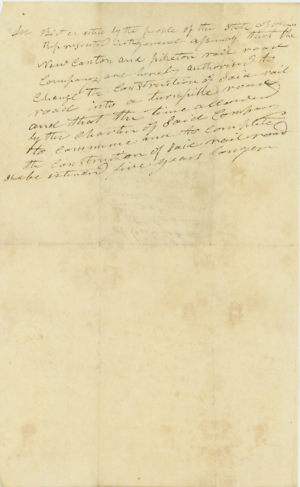 Sec Be it enacted by the people of the State of Illinois
Represented in the general assembly that the
New Canton and piketon rail road
Company are hereby authorized to
Change the Construction of Said rail
road into a turnpike road
and that the time allowed
by the Charter of Said Company
to Commence and to Complete
the Construction of Said rail road
be extended five years longer